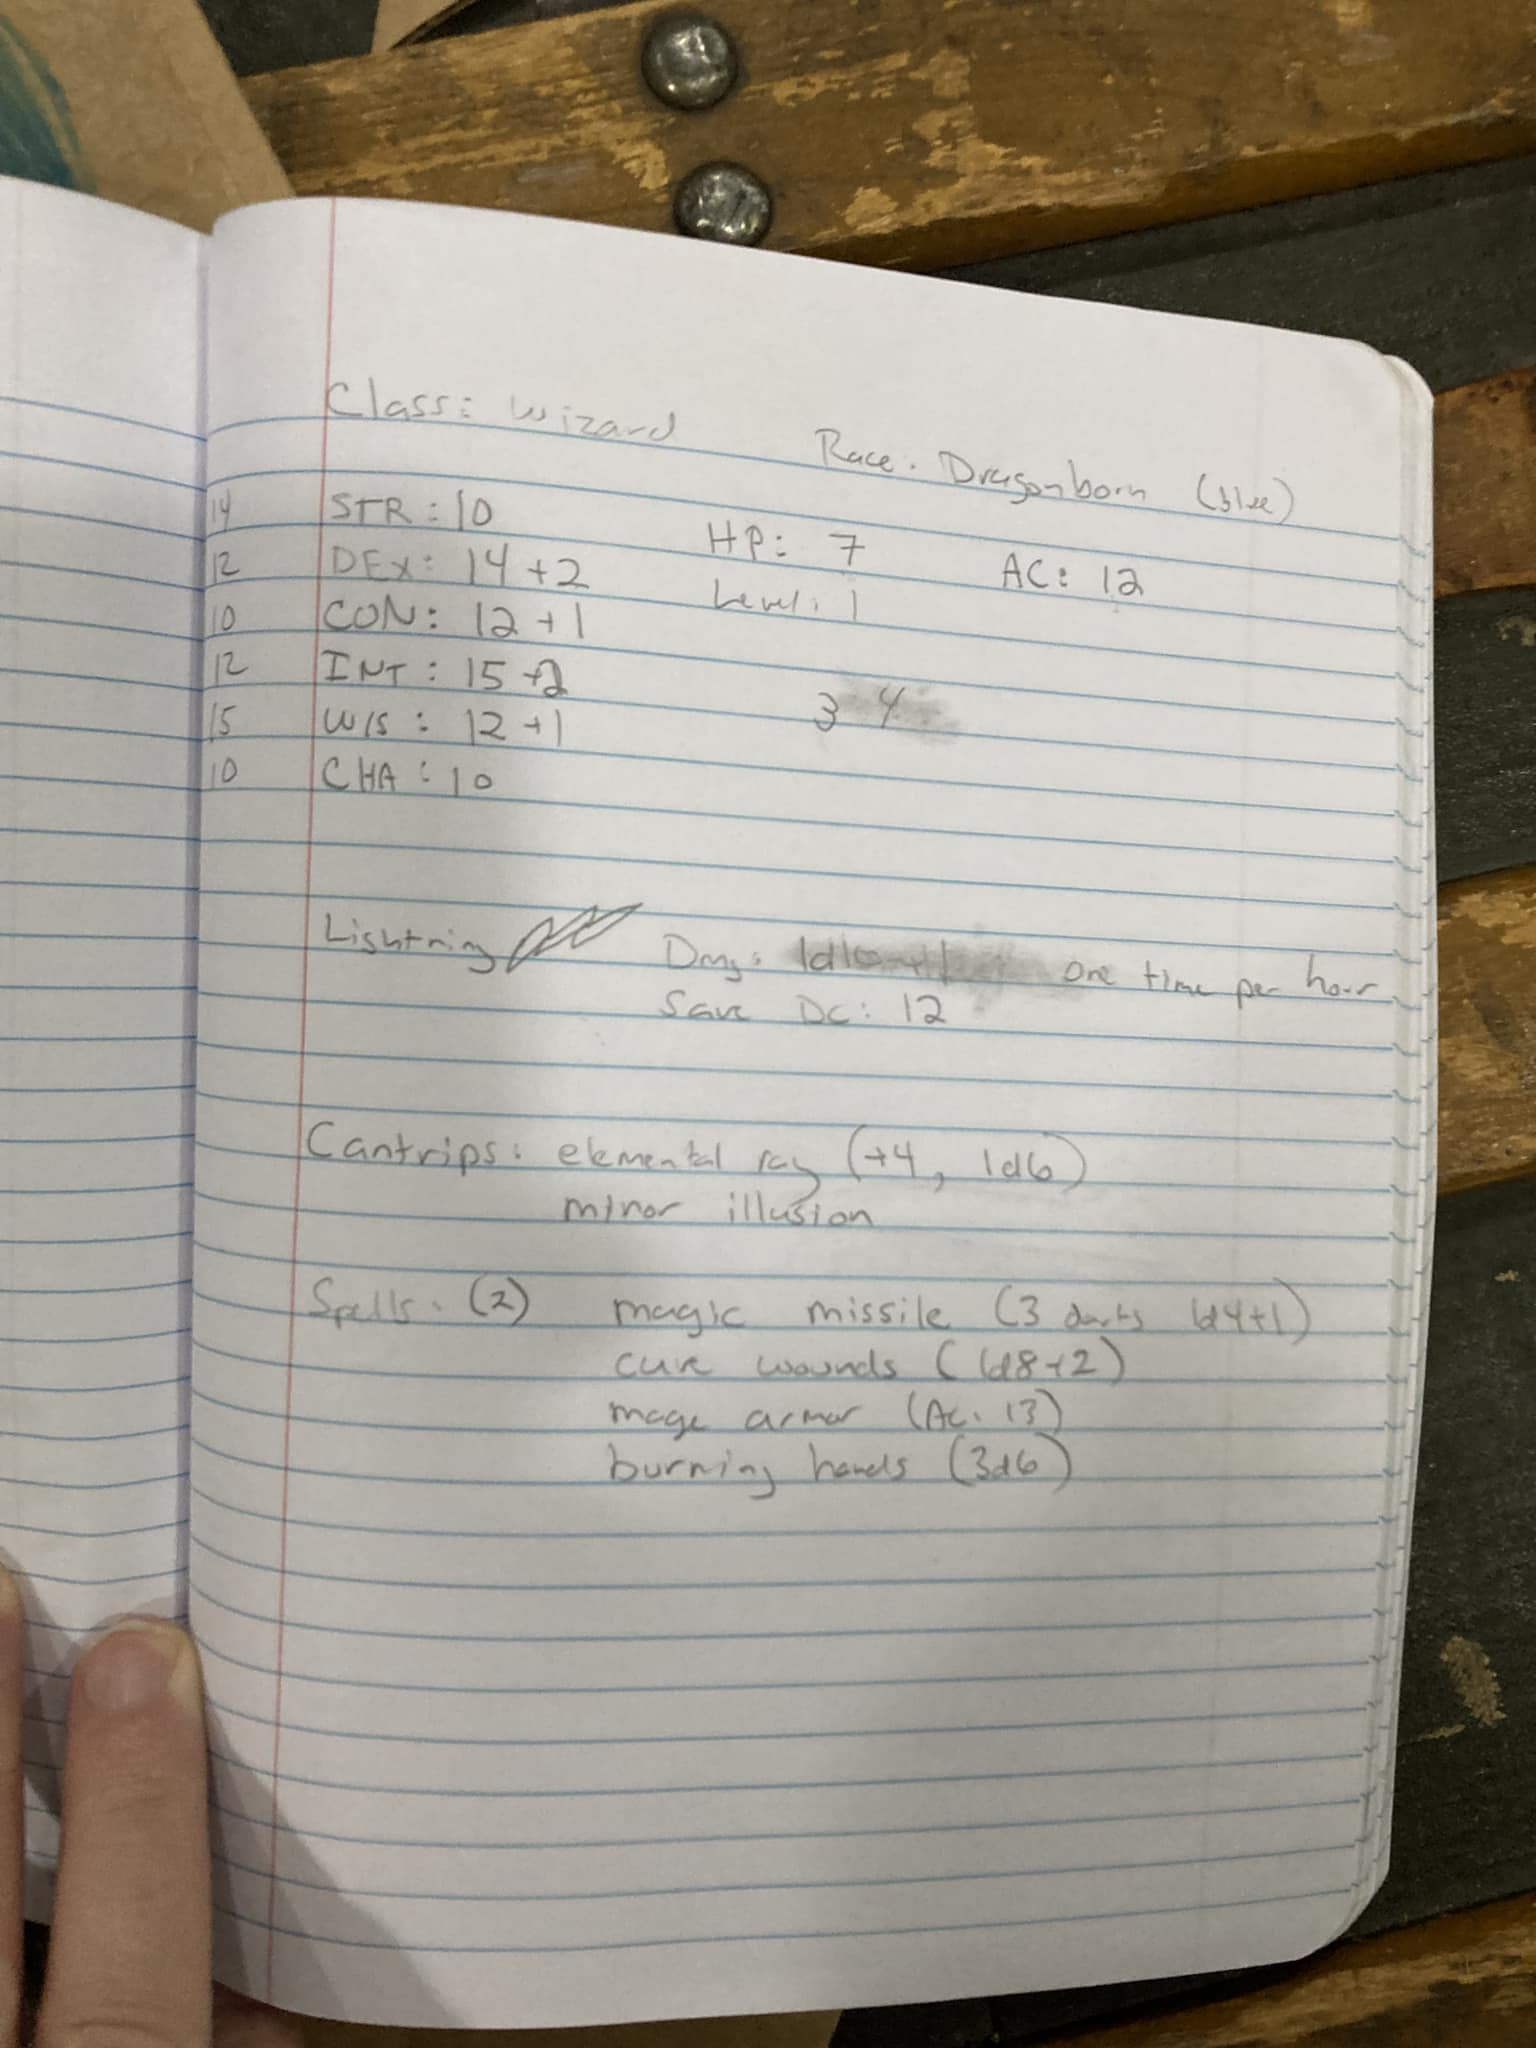 Class: Wizard Race: Dragonborn (blue)
14 STR: 10
HP: 7 AC: 12
12 DEX: 14 +2
Level: 1
10 CON: 12 +1
12 INT: 15 +2
3 4
15 WIS: 12 +1
10 CHA: 10
Lightning Dmg: 1d10+1 one time per hour
Save DC: 12
Cantrips: elemental ray (+4, 1d6)
minor illusion
Spells: (2) magic missile (3 darts 1d4+1)
cure wounds (1d8+2)
mage armor (AC: 13)
burning hands (3d6)